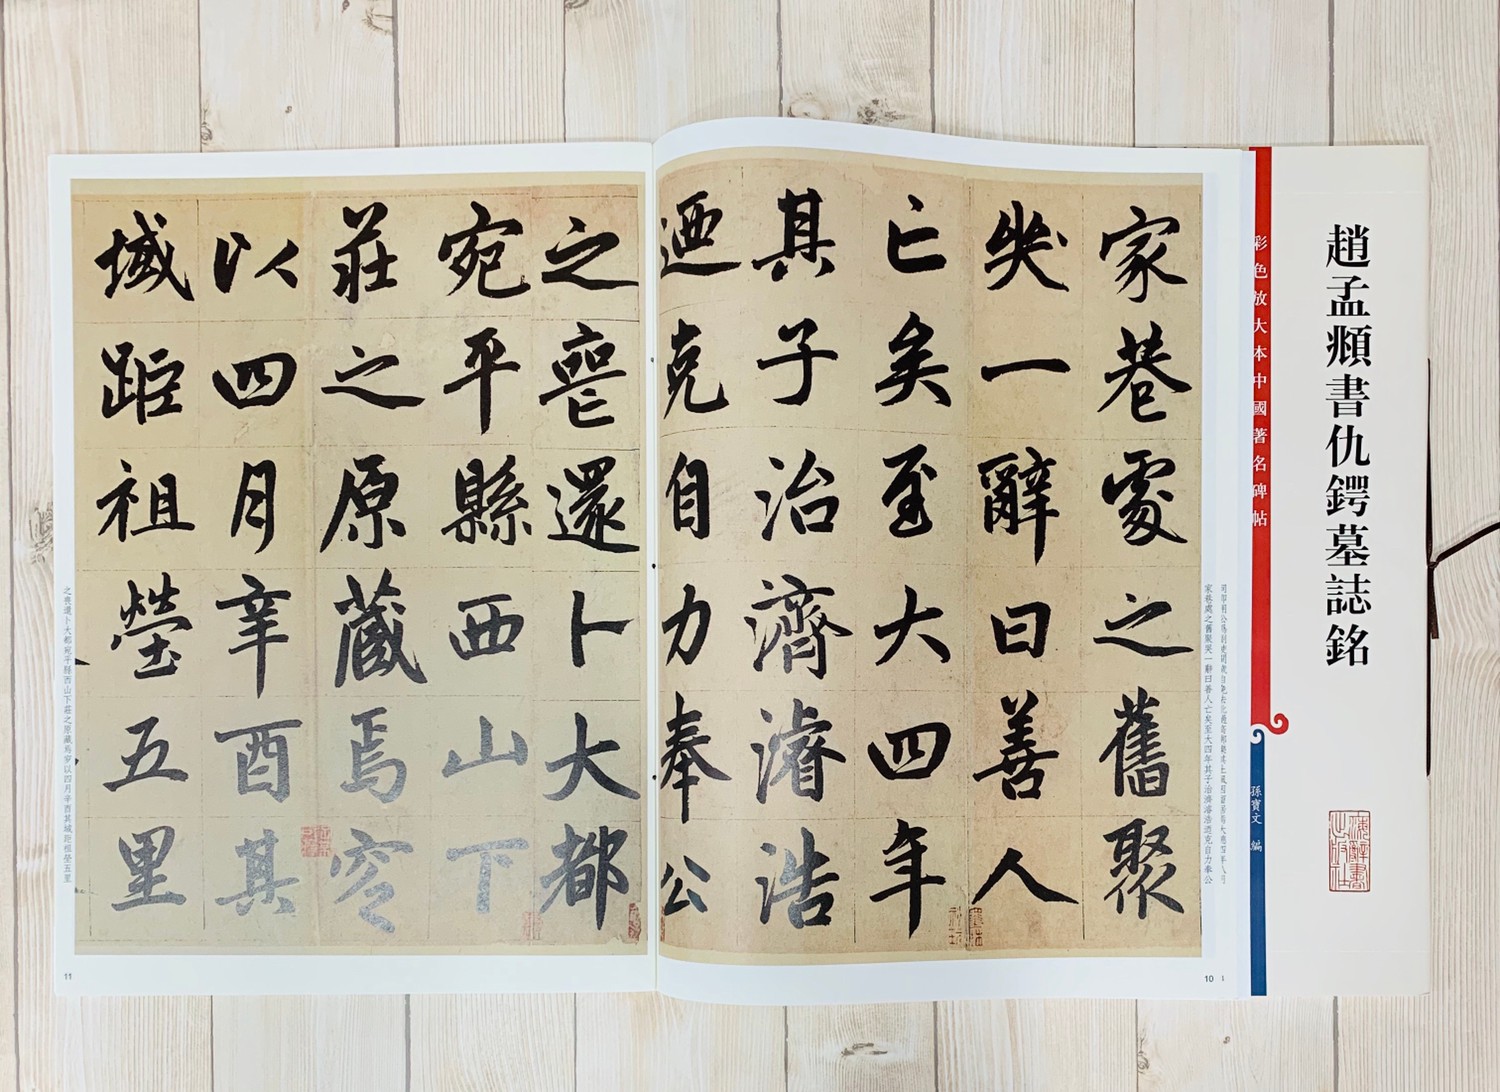 趙孟頫書仇鍔墓誌銘
彩色放大本中國著名碑帖
孫寶文 編
家巷處之舊聚
哭一辭曰善人
亡矣至大四年
其子治濟濬浩
迺克自力奉公
之喪還卜大都
宛平縣西山下
莊之原藏焉窆
以四月辛酉其
域距祖塋五里
家巷處之舊聚哭一辭曰善人亡矣至大四年其子治濟濬浩迺克自力奉公
之喪還卜大都宛平縣西山下莊之原藏焉窆以四月辛酉其域距祖塋五里
10
11